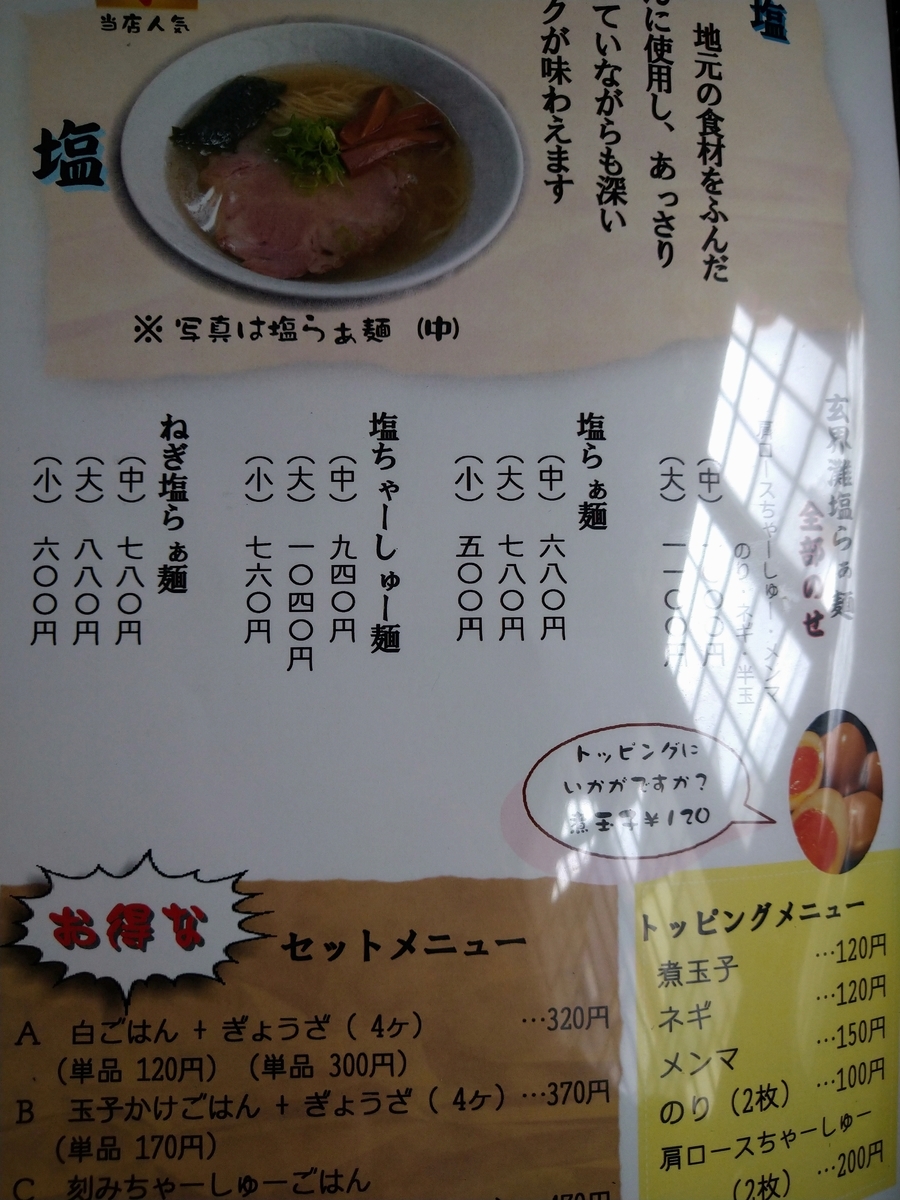 当店人気
塩
塩
地元の食材をふんだ
に使用し、あっさり
ていながらも深い
クが味わえます
※写真は塩らぁ麺（中）
玄界灘塩らぁ麺
全部のせ
肩ロースちゃーしゅー・メンマ
のり・ネギ・半玉
（中）
（大）一一〇〇円
塩らぁ麺
（中）六八〇円
（大）七八〇円
（小）五〇〇円
塩ちゃーしゅー麺
（中）九四〇円
（大）一〇四〇円
（小）七六〇円
ねぎ塩らぁ麺
（中）七八〇円
（大）八八〇円
（小）六〇〇円
トッピングに
いかがですか？
煮玉子￥120
お得な
セットメニュー
A 白ごはん + ぎょうざ ( 4ヶ) …320円
(単品 120円) (単品 300円)
B 玉子かけごはん + ぎょうざ ( 4ヶ) …370円
(単品 170円)
C 刻みちゃーしゅーごはん
トッピングメニュー
煮玉子 …120円
ネギ …120円
メンマ …150円
のり (2枚) …100円
肩ロースちゃーしゅー
(2枚) …200円